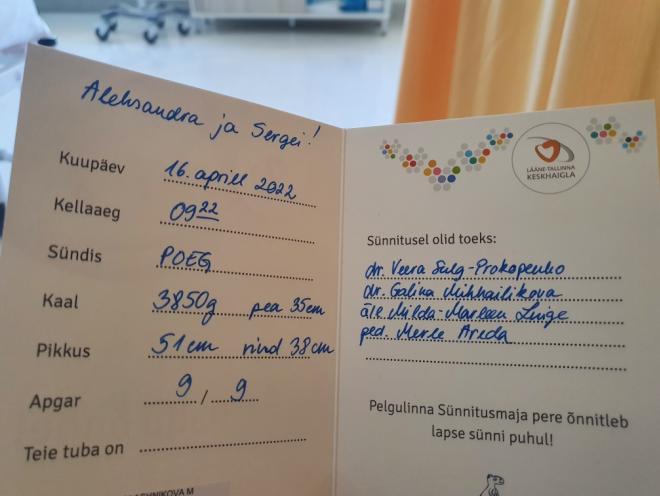 Aleksandra ja Sergei!
Kuupäev 16. aprill 2022
Kellaaeg 09 22
Sündis POEG
Kaal 3850g pea 35cm
Pikkus 51cm rind 38cm
Apgar 9 / 9
Teie tuba on
LÄÄNE-TALLINNA
KESKHAIGLA
Sünnitusel olid toeks:
dr. Veera Sulg-Prokopenko
dr. Galina Mihhailikova
äe Milda-Marleen Luige
ped. Merle Areda
Pelgulinna Sünnitusmaja pere õnnitleb
lapse sünni puhul!